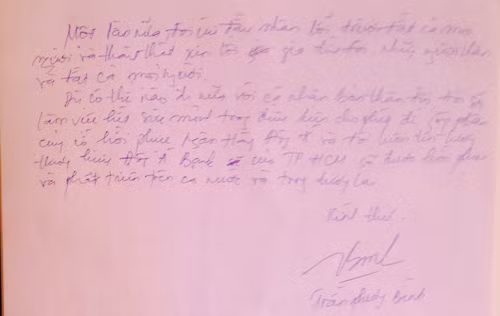 Một lần nữa tôi xin tự nhận lỗi trước tất cả mọi
người và thành thật xin lỗi gia đình tôi, những người thân
và tất cả mọi người.
Dù có thế nào đi nữa với cá nhân bản thân tôi, tôi sẽ
làm việc hết sức mình trong điều kiện cho phép để góp phần
củng cố, hồi phục Ngân Hàng Đông Á và
hiệu Đông Á Bank của TP HCM sẽ được hồi phục
và phát triển trên cả nước và trong tương lai.
Kính thư.
Trần Phương Bình